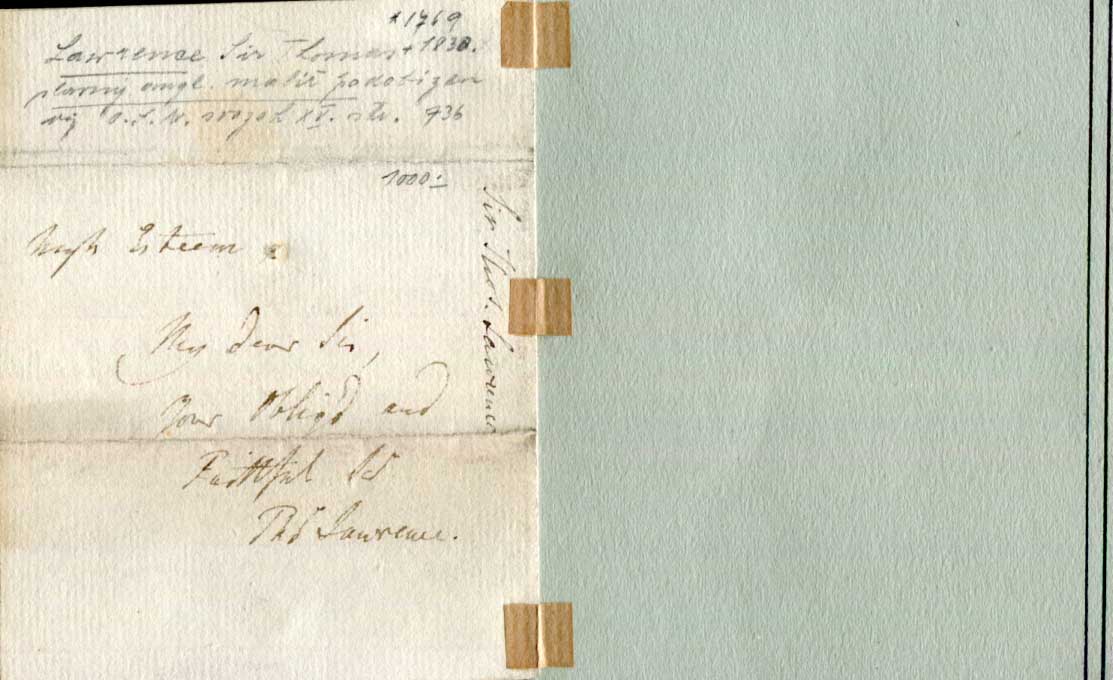 * 1769
Lawrence Sir Thomas + 1830.
slavný angl. malíř podobizen
viz O.S.N. svazek XV. str. 736
1000:-
High Esteem
My dear Sir,
Your Oblig'd and
Faithful Sd
Thos Lawrence.
Sir Thos. Lawrence